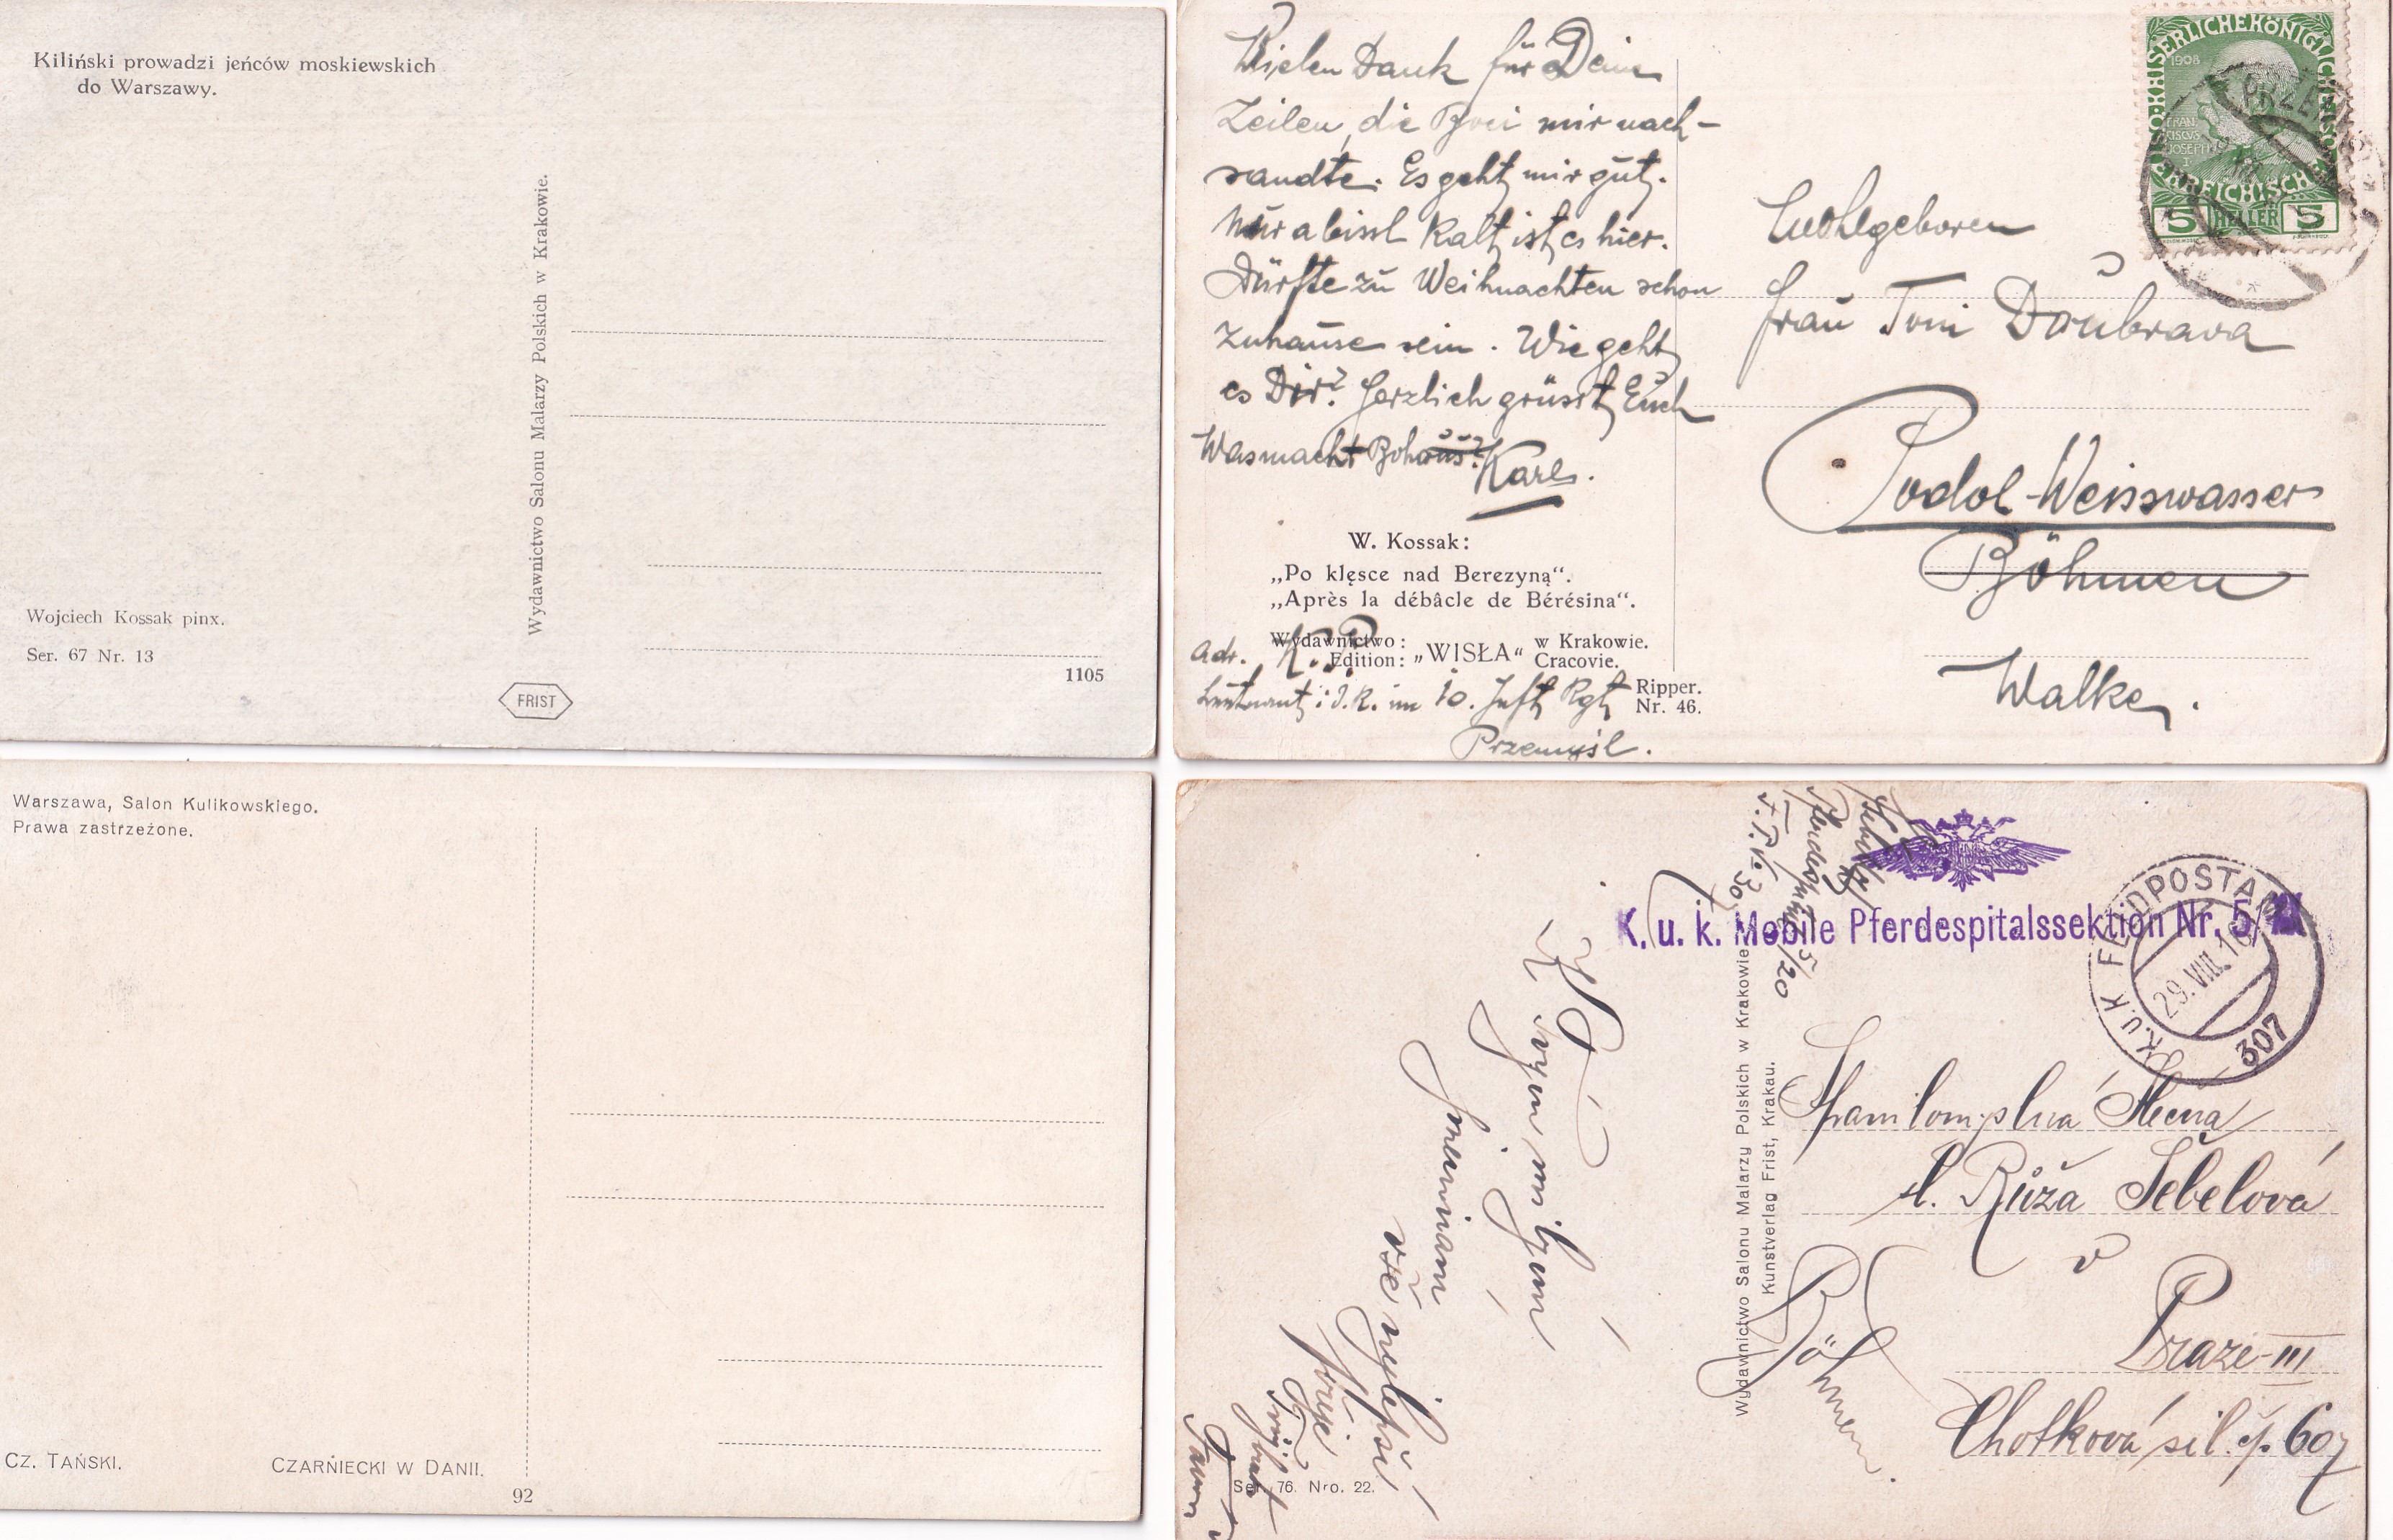 Kiliński prowadzi jeńców moskiewskich
do Warszawy.
Wydawnictwo Salonu Malarzy Polskich w Krakowie.
Wojciech Kossak pinx.
Ser. 67 Nr. 13
1105
FRIST
Vielen Dank für Deine
Zeilen, die mir nach-
sandte. Es geht mir gut.
Nur a bissl kalt ist es hier.
Dürfte zu Weihnachten schon
zuhause sein. Wie geht
es Dir? Herzlich grüsst Euch
Was macht
Karl.
W. Kossak:
„Po klęsce nad Berezyną“.
„Après la débâcle de Bérésina“.
Wydawnictwo: „WISŁA“ w Krakowie.
Edition: Cracovie.
Adr. K. D.
Leutnant i. d. R. im 10. Inft Rgt
Przemyśl.
Ripper.
Nr. 46.
KAISERLICHEKÖNIGLICHE
ÖSTERREICHISCHE
1908
FRAN
CISCUS
JOSEPH
I
5 HELLER 5
Wohlgeboren
Frau Toni Doubrava
Podol-Weisswasser
Böhmen
Walke.
Warszawa, Salon Kulikowskiego.
Prawa zastrzeżone.
CZ. TAŃSKI.
CZARŃIECKI W DANII.
92
K. u. k. Mobile Pferdespitalssektion Nr. 5/
K.u.K FELDPOSTAMT
29. VIII. 16
307
Wydawnictwo Salonu Malarzy Polskich w Krakowie
Kunstverlag Frist, Krakau.
vše nejlepší
Slečna
sl. Růža Šebelová
v
Praze-III
Chotkova sil. čp. 607
Böhmen.
Ser. 76. Nro. 22.